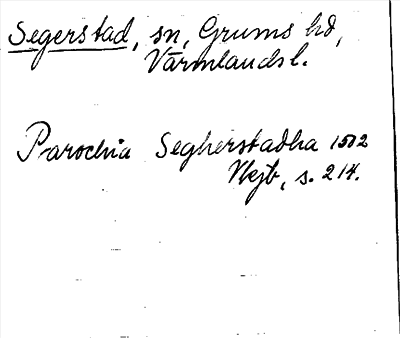 Segerstad, sn, Grums hd,
Värmlands l.
Parochia Segherstadha 1502
s. 214.